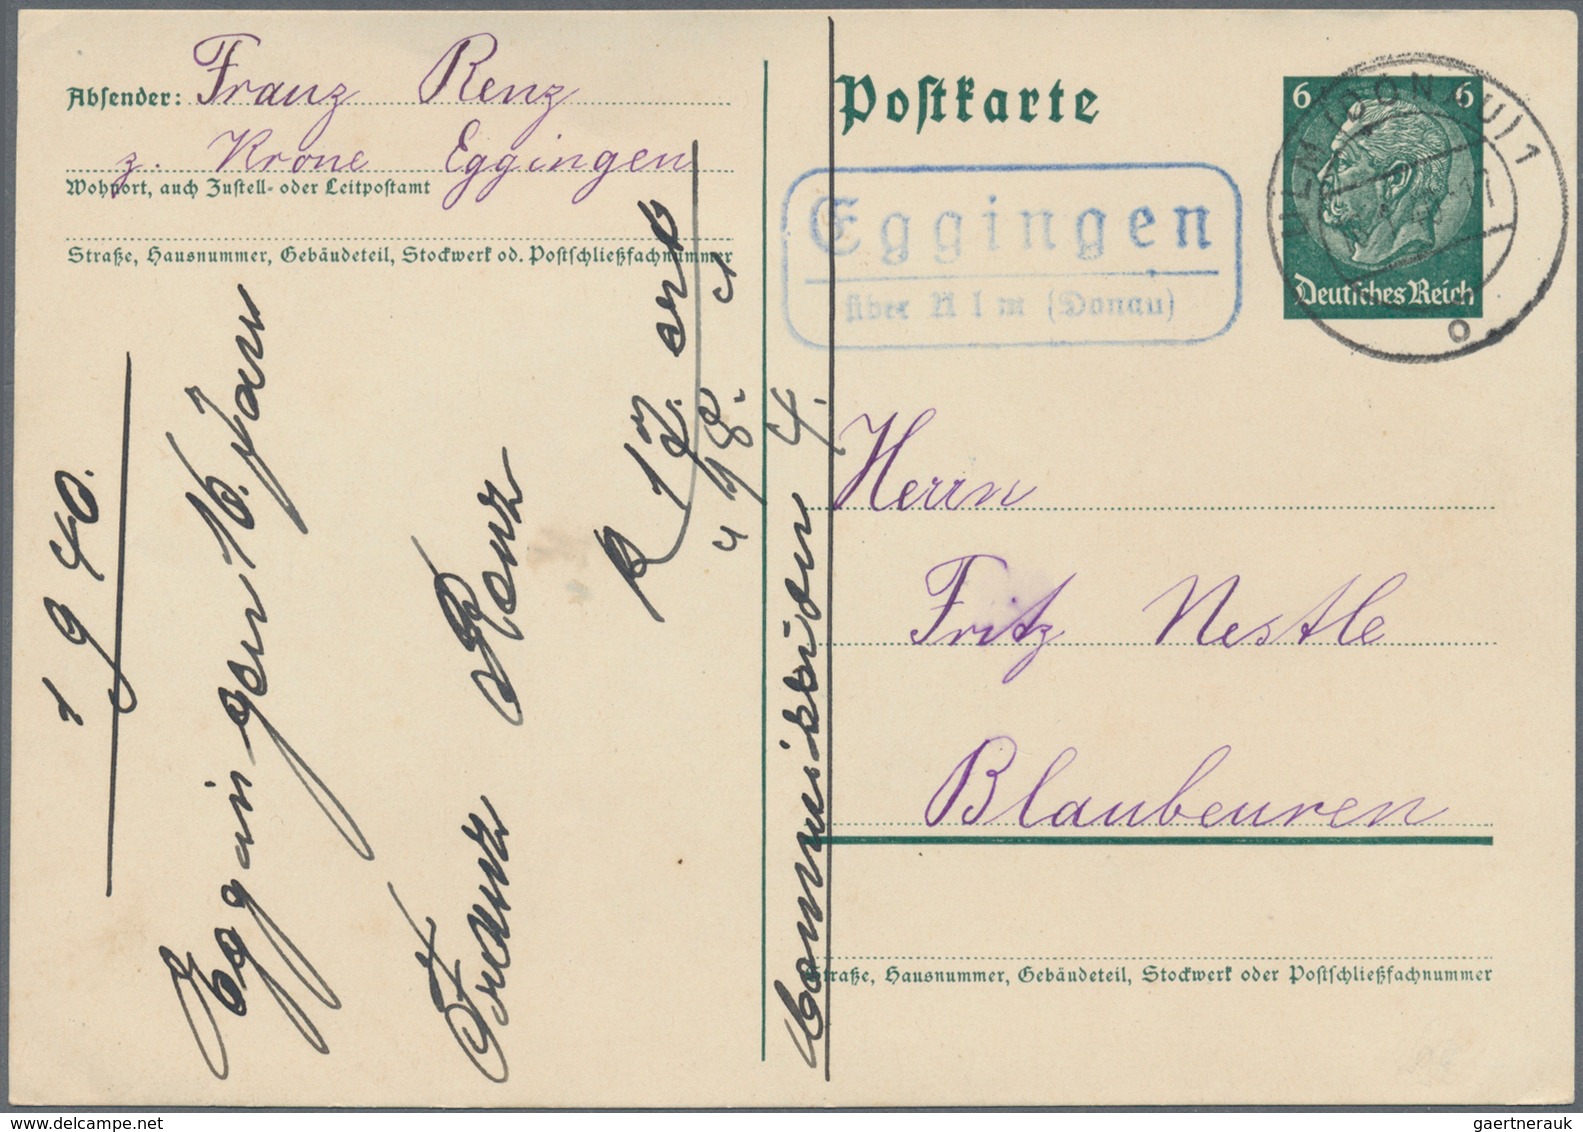 Absender: Franz Renz
z. Krone Eggingen
Wohnort, auch Zustell- oder Leitpostamt
Straße, Hausnummer, Gebäudeteil, Stockwerk od. Postschließfachnummer
Postkarte
6 6
Deutsches Reich
ULM (DONAU) 1
Eggingen
über Ulm (Donau)
Herrn
Fritz Nestle
Blaubeuren
Straße, Hausnummer, Gebäudeteil, Stockwerk oder Postschließfachnummer
1940.
Eggingen 16. Jan
Franz Renz
17.
" 18.
4.
gaertnerauk @ www.delcampe.net